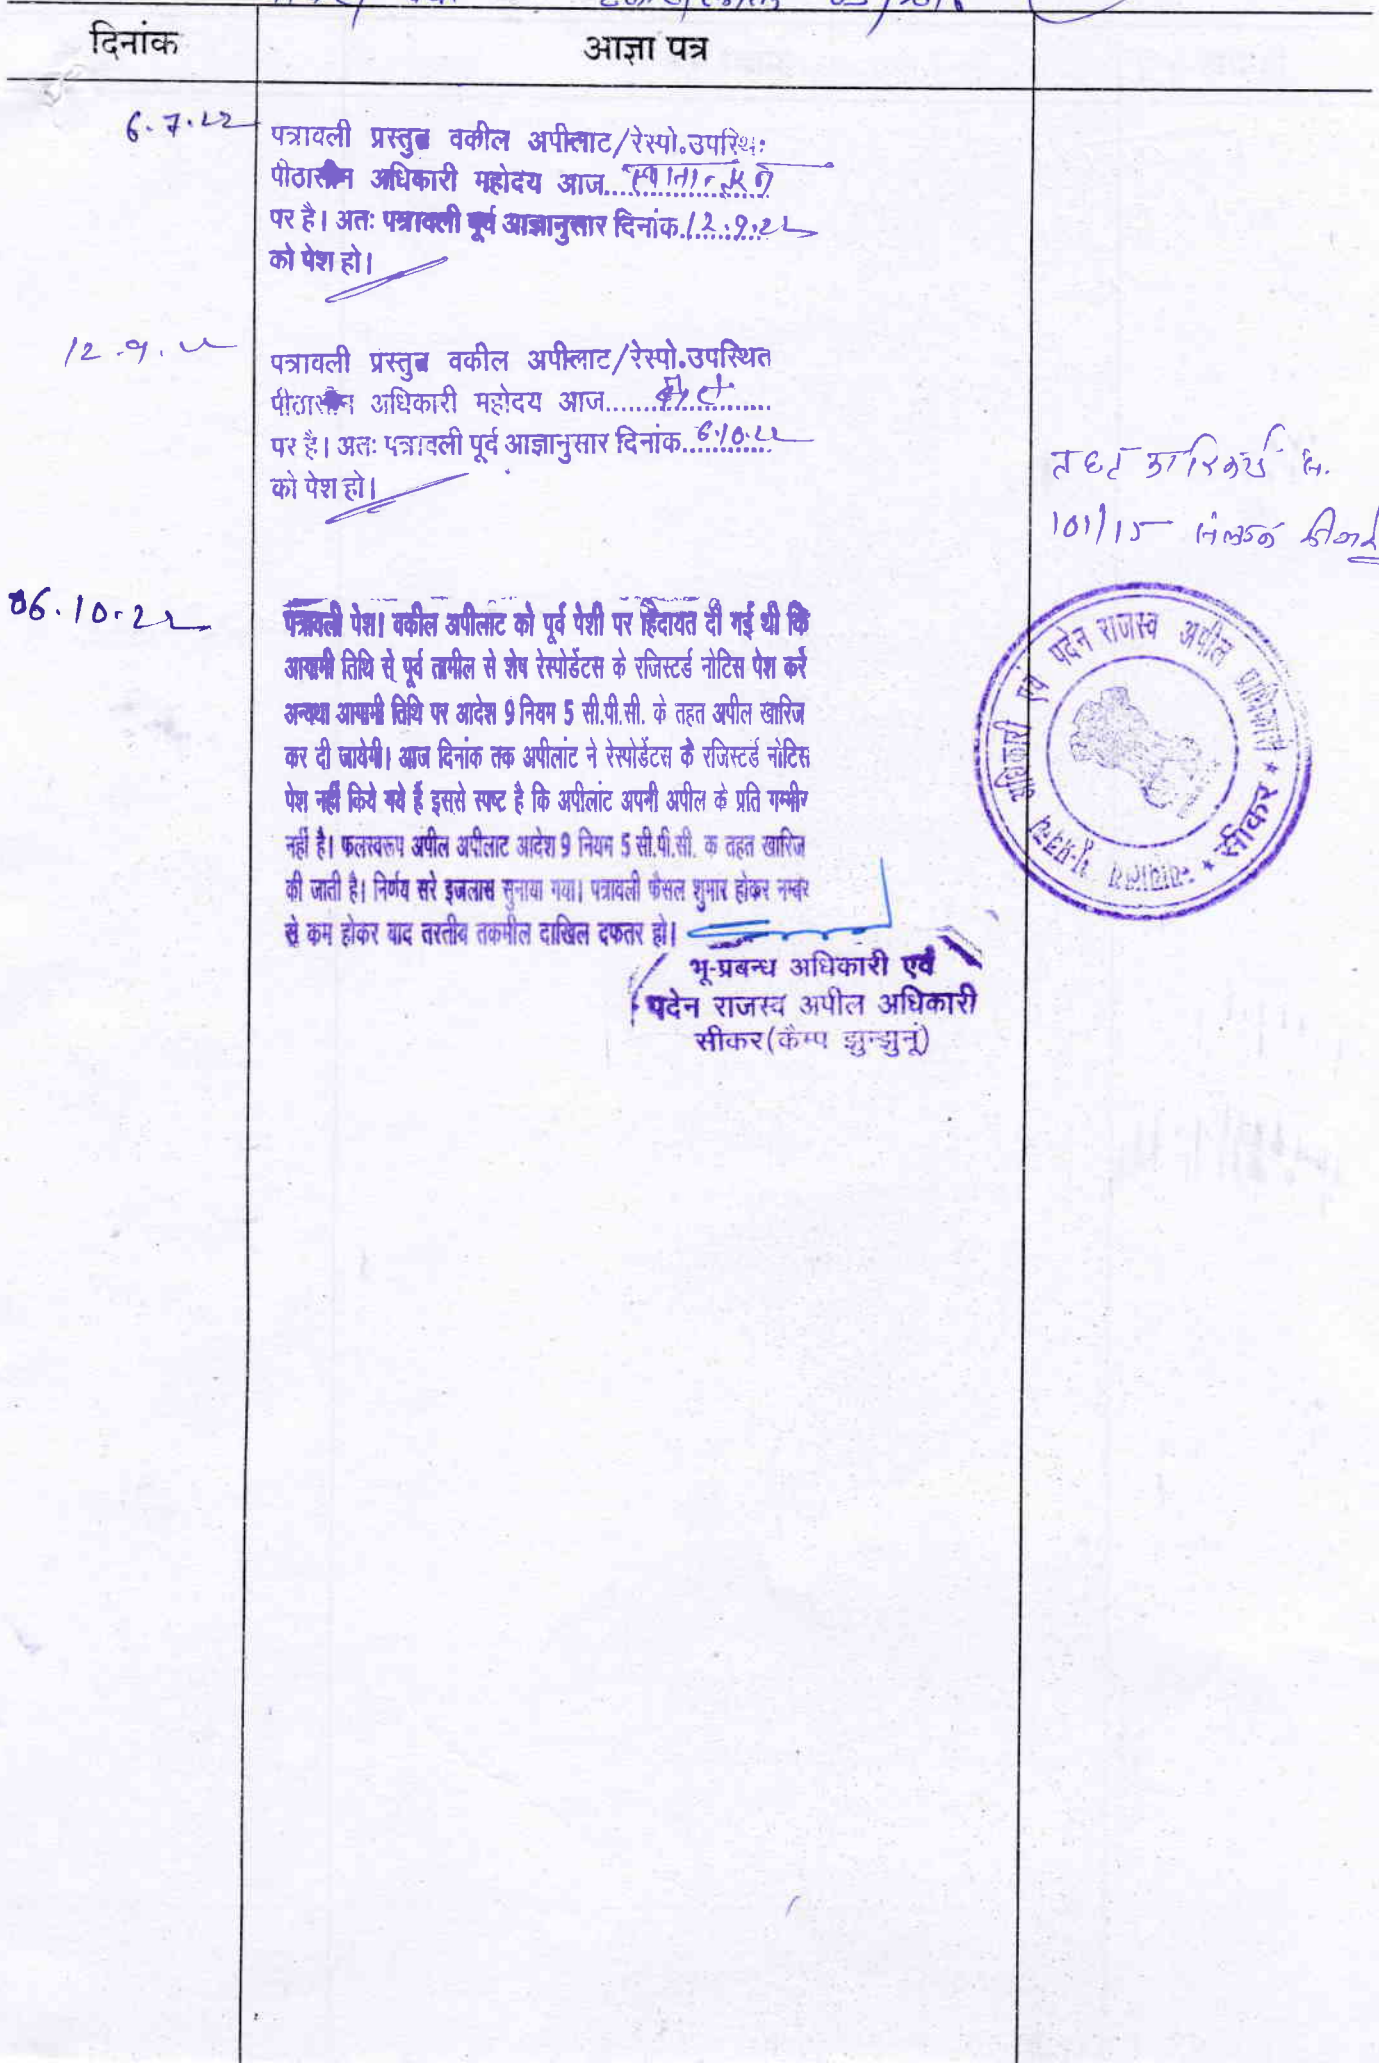 दिनांक
आज्ञा पत्र
6.7.22
पत्रावली प्रस्तुत वकील अपीलाट/रेस्पो.उपस्थि
पीठासीन अधिकारी महोदय आज
पर है। अतः पत्रावली पूर्व आज्ञानुसार दिनांक 12.9.22
को पेश हो।
12.9.22
पत्रावली प्रस्तुत वकील अपीलाट/रेस्पो.उपस्थित
पीठासीन अधिकारी महोदय आज
पर है। अतः पत्रावली पूर्व आज्ञानुसार दिनांक 6.10.22
को पेश हो।
101/15
06.10.22
पत्रावली पेश। वकील अपीलाट को पूर्व पेशी पर हिदायत दी गई थी कि
आगामी तिथि से पूर्व तामील से शेष रेस्पोडेंटस के रजिस्टर्ड नोटिस पेश करे
अन्यथा आगामी तिथि पर आदेश 9 नियम 5 सी.पी.सी. के तहत अपील खारिज
कर दी जायेगी। आज दिनांक तक अपीलांट ने रेस्पोडेंटस के रजिस्टर्ड नोटिस
पेश नहीं किये गये है इससे स्पष्ट है कि अपीलांट अपनी अपील के प्रति गम्भीर
नहीं है। फलस्वरूप अपील अपीलाट आदेश 9 नियम 5 सी.पी.सी. क तहत खारिज
की जाती है। निर्णय सरे इजलास सुनाया गया। पत्रावली फैसल शुमार होकर नम्बर
से कम होकर बाद तरतीब तकमील दाखिल दफतर हो।
भू-प्रबन्ध अधिकारी एवं
पदेन राजस्व अपील अधिकारी
सीकर(कैम्प झुन्झुनूं)
अधिकारी एवं पदेन राजस्व अपील
* सीकर *